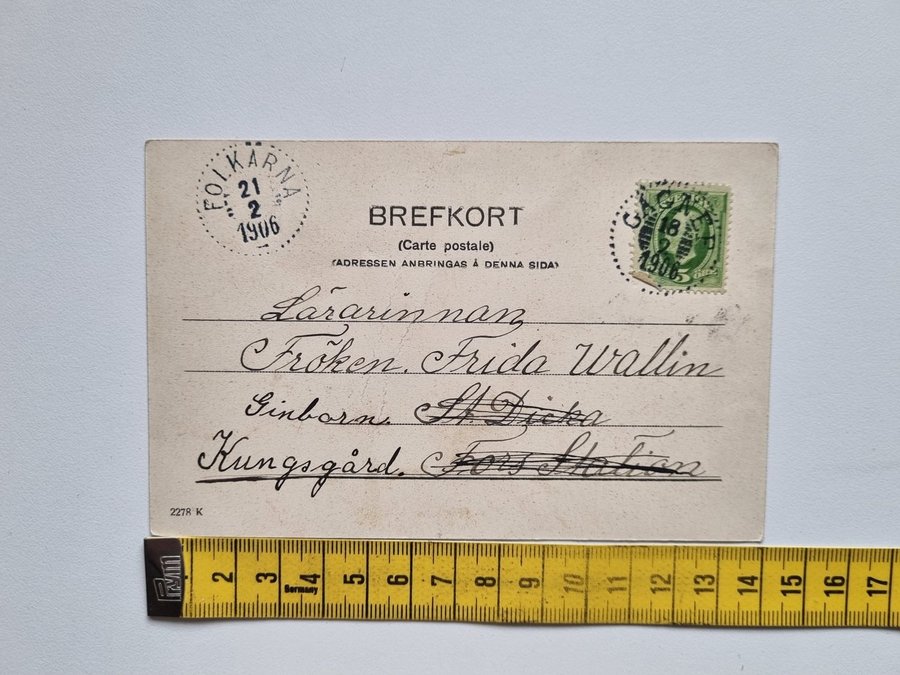 FOLKÄRNA
21
2
1906
BREFKORT
(Carte postale)
(ADRESSEN ANBRINGAS Å DENNA SIDA)
GAGNEF
18
2
1906
5
Lärarinnan
Fröken. Frida Wallin
Ginborn. St. Dicka
Kungsgård. Fors Station
2278 K
Prym
2 3 4 5 6 7 8 9 10 11 12 13 14 15 16 17
Germany